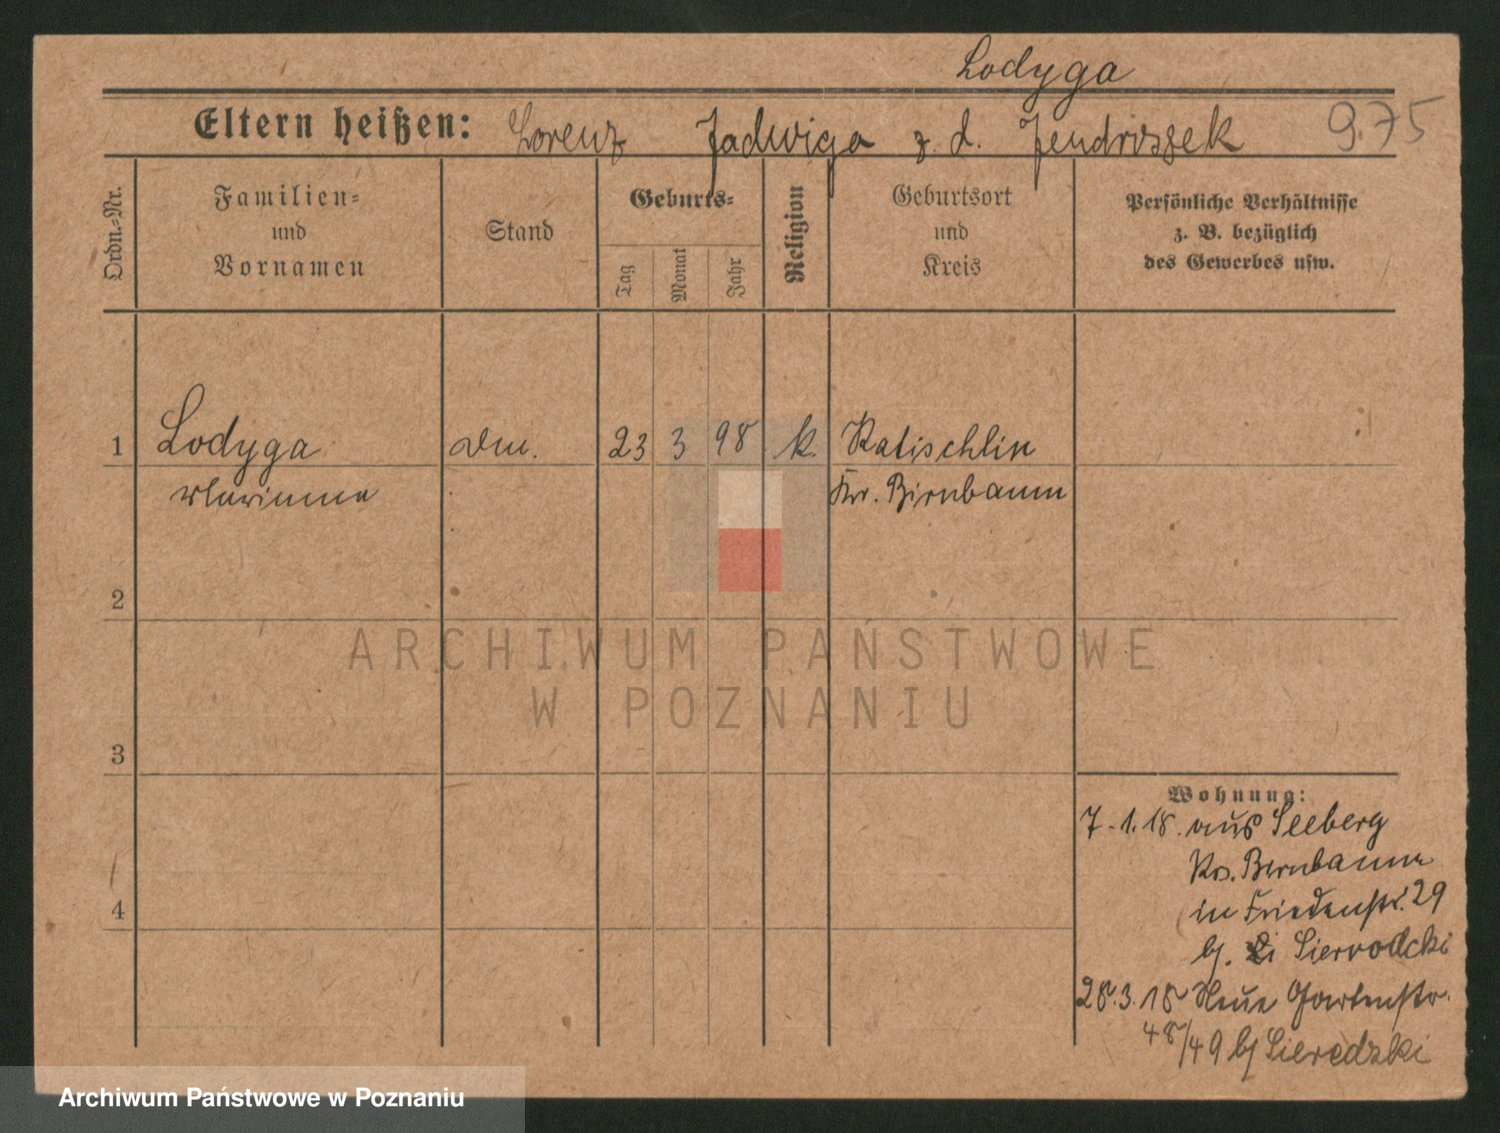 Lodyga
Eltern heißen: Lorenz Jadwiga z. d. Jendrossek 975
Ordn.-Nr.
Familien-
und
Vornamen
Stand
Geburts-
Tag
Monat
Jahr
Religion
Geburtsort
und
Kreis
Persönliche Verhältnisse
z. B. bezüglich
des Gewerbes usw.
1 Lodyga 23 3 98 k. Ratischlin
Marianna Kr. Birnbaum
2
3
4
Wohnung:
7.1.18. aus Seeberg
Krs. Birnbaum
in Friedenstr. 29
b.
28.3.18 Neue Gartenstr.
48/49 b/ Sieredzki
ARCHIWUM PAŃSTWOWE
W POZNANIU
Archiwum Państwowe w Poznaniu